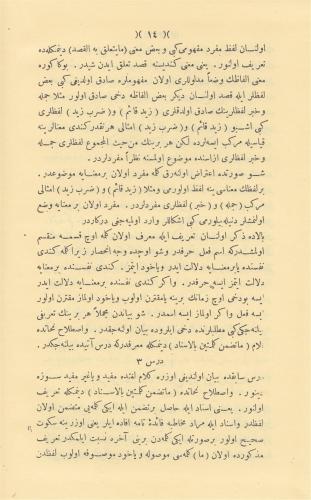 )( ١٤ )(
اولنان لفظ مفرد مفهومی کبی و بعض معنی (مايتعلق به القصد) ديمکله‌ده
تعريف اولنور . يعنی معنی کنديسنه قصد تعلق ايدن شيدر . بوکا کوره
معنی الفاظک وضعاً مدلولاری اولان مفهوملره صادق اولديغی کبی بعض
لفظلر ايله قصد اولنان ديکر بعض الفاظه دخی صادق اولور مثلا جمله
وخبر لفظلرينک صادق اولدقلری (زيد قائم) و (ضرب زيد) لفظلری
کبی اشبو (زيد قائم) و (ضرب زيد) امثالی هرنقدر کندی معنالرينه
قياسيله مرکب ايسه‌لرده لکن هر برينک من‌حيث المجموع لفظلری جمله
وخبر لفظلری ازاسنده موضوع اولمسنه نظراً مفرددرلر .
شو صورتده اعتراض اولنه‌رق کله مفرد اولان برمعنايه موضوعدر .
برلفظک معناسی ينه لفظ اولورمی ومثلا (زيد قائم) و (ضرب زيد)
مرکب (جمله) و (خبر) لفظلری مفرددرلر . مفرد اولان برمعنايه وضع
اولنمشلر دنيله‌بيلورمی کبی اشکاللر وارد اوليه‌جغی درکاردر
بالاده ذکر اولنان تعريف ايله معرف اولان کله اوچ قسمه منقسم
اولشدرکه اسم فعل حرفدر وشو اوجده وجه انحصار زيرا کله کندی
نفسنده يابرمعنايه دلالت ايدر وياخود ايتمز . کندی نفسنده برمعنايه
دلالت ايتمز ايسه حرفدر . واکر کندی نفسنده برمعنايه دلالت ايدر
ايسه بودخی اوچ زمانک برينه يامقترن اولوب وياخود اولماز مقترن اولور
ايسه فعل واکر اولماز ايسه اسمدر . شو بياندن مجملاً هر برينک تعريفی
بيانه‌جکی کبی مطلبلرنده دخی ايلروده بيان اولنه‌جقدر . واصطلاح نحاتده
کلام (ماتضمن کلمتين بالاسناد) ديمکله معرفدرکه درس آتيده بيانه‌جکدر .
درس ٣
درس سابقده بيان اولنديغی اوزره کلام لغتده مفيد وياغير مفيد سوزه
دينور . واصطلاح نحاتده (ماتضمن کلمتين بالاسناد) ديمکله تعريف
اولنور . يعنی اسناد ايله حاصل برتضمن ايله ايکی کله‌يی متضمن اولان
لفظدر واسناد ايله مراد مخاطبه فائدهٔ تامه افاده ايلر يعنی اوزرينه سکوت
صحيح اولور برصورتله ايکی کله‌دن برينی آخره نسبت ايلمکدر تعريف
مذکورده اولان (ما) کله‌سی موصوله وياخود موصوفه اولوب لفظدن